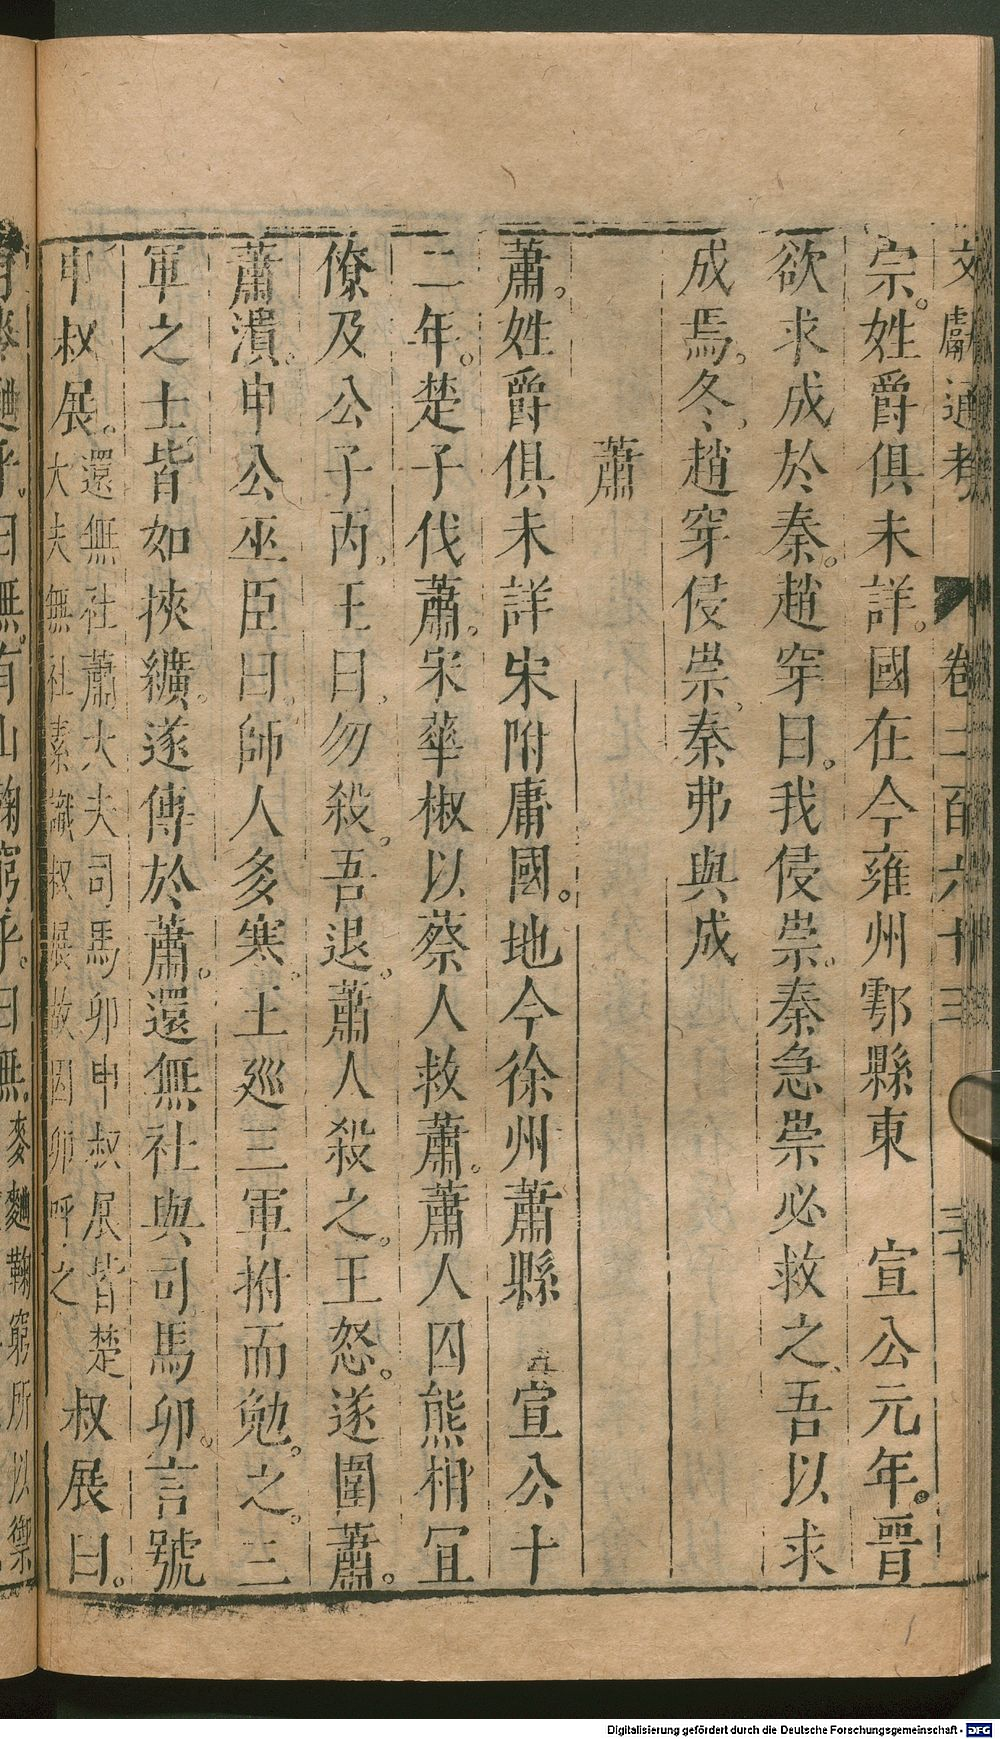 文獻通考 卷二百六十三 三十
宗。姓爵俱未詳。國在今雍州鄠縣東 宣公元年。晉
欲求成於秦。趙穿曰。我侵崇。秦急崇必救之、吾以求
成焉。冬、趙穿侵崇。秦弗與成
蕭
蕭。姓爵俱未詳宋附庸國。地今徐州蕭縣 宣公十
二年。楚子伐蕭。宋華椒以蔡人救蕭。蕭人囚熊相宜
僚及公子丙。王曰。勿殺。吾退。蕭人殺之。王怒。遂圍蕭。
蕭潰。申公巫臣曰。師人多寒。王廵三軍拊而勉之。三
軍之士皆如挾纊。遂傅於蕭。還無社與司馬卯。言號
申叔展。還無社蕭大夫司馬卯申叔展皆楚
大夫無社素識叔展故因卯呼之
叔展曰。
有麥麴乎。曰無。有山鞠窮乎。曰無。麥麴鞠窮所以禦
Digitalisierung gefördert durch die Deutsche Forschungsgemeinschaft - DFG